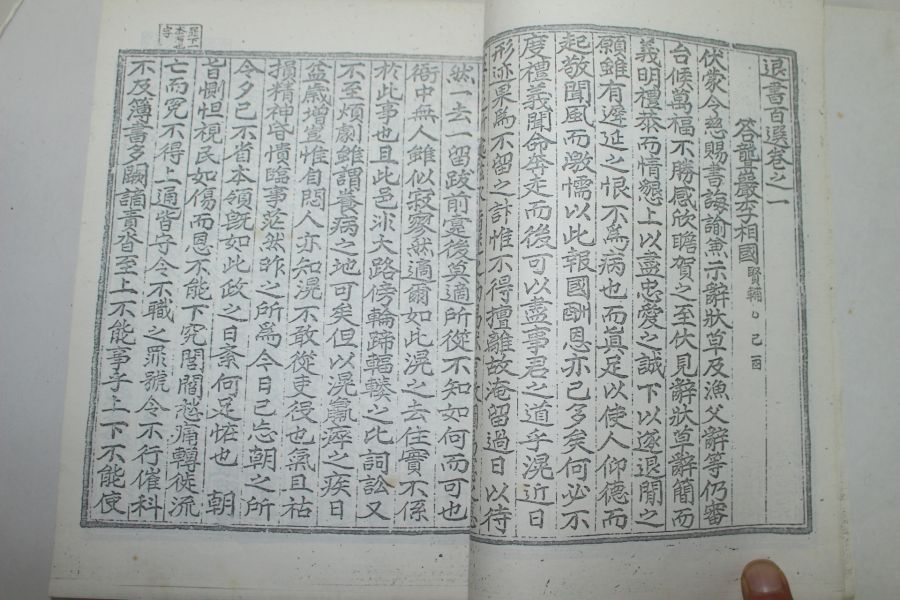 退書百選卷之一
答聾巖李相國 賢輔 ○ 己酉
伏蒙令慈賜書誨諭兼示辭狀草及漁父辭等仍審
台候萬福不勝感欣瞻賀之至伏見辭狀草辭簡而
義明禮恭而情懇上以盡忠愛之誠下以遂退閒之
願雖有遲延之恨不爲病也而眞足以使人仰德而
起敬聞風而激懦以此報國酬恩亦已多矣何必不
度禮義聞命奔走而後可以盡事君之道乎滉近日
形迹果爲不留之計惟不得擅離故淹留過日以待
然一去一留跋前疐後莫適所從不知如何而可也
衙中無人雖似寂寥然適爾如此滉之去住實不係
於此事也且此邑非大路傍輪蹄輻輳之比詞訟又
不至煩劇雖謂養病之地可矣但以滉羸瘁之疾日
益歲增豈惟自悶人亦知滉不敢從吏役也氣且枯
損精神昏憒臨事茫然昨之所爲今日已忘朝之所
令夕已不省本領旣如此政之日紊何足怪也 朝
旨惻怛視民如傷而恩不能下究閭閻愁痛轉徙流
亡而冤不得上通皆守令不職之罪號令不行催科
不及簿書多闕誚責沓至上不能事乎上下不能使